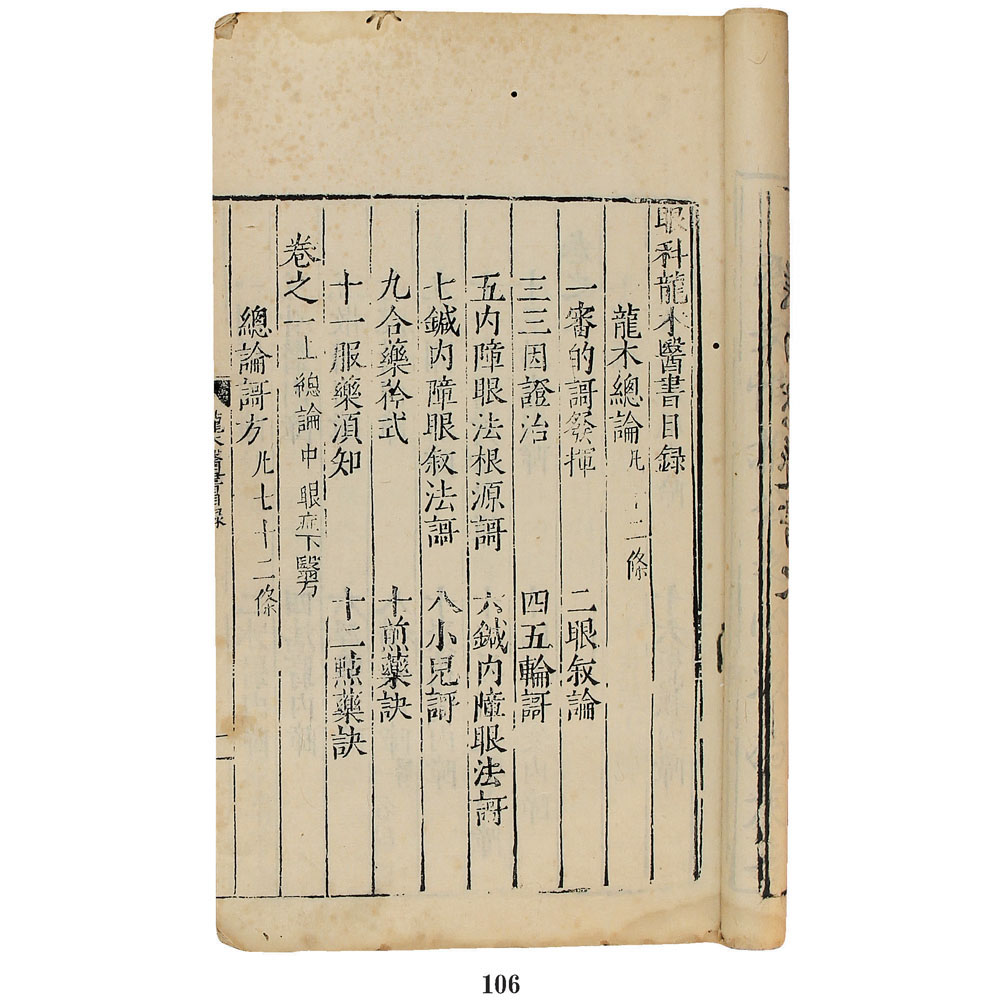 眼科龍木醫書目録
龍木總論 凡十二條
一審的謌發揮 二眼叙論
三三因證治 四五輪謌
五内障眼法根源謌 六鍼内障眼法謌
七鍼内障眼叙法謌 八小兒謌
九合藥矜式 十煎藥訣
十一服藥湏知 十二㸃藥訣
卷之一 上總論中眼症下醫方
總論謌方 凡七十二條
龍木醫書目録
一
106